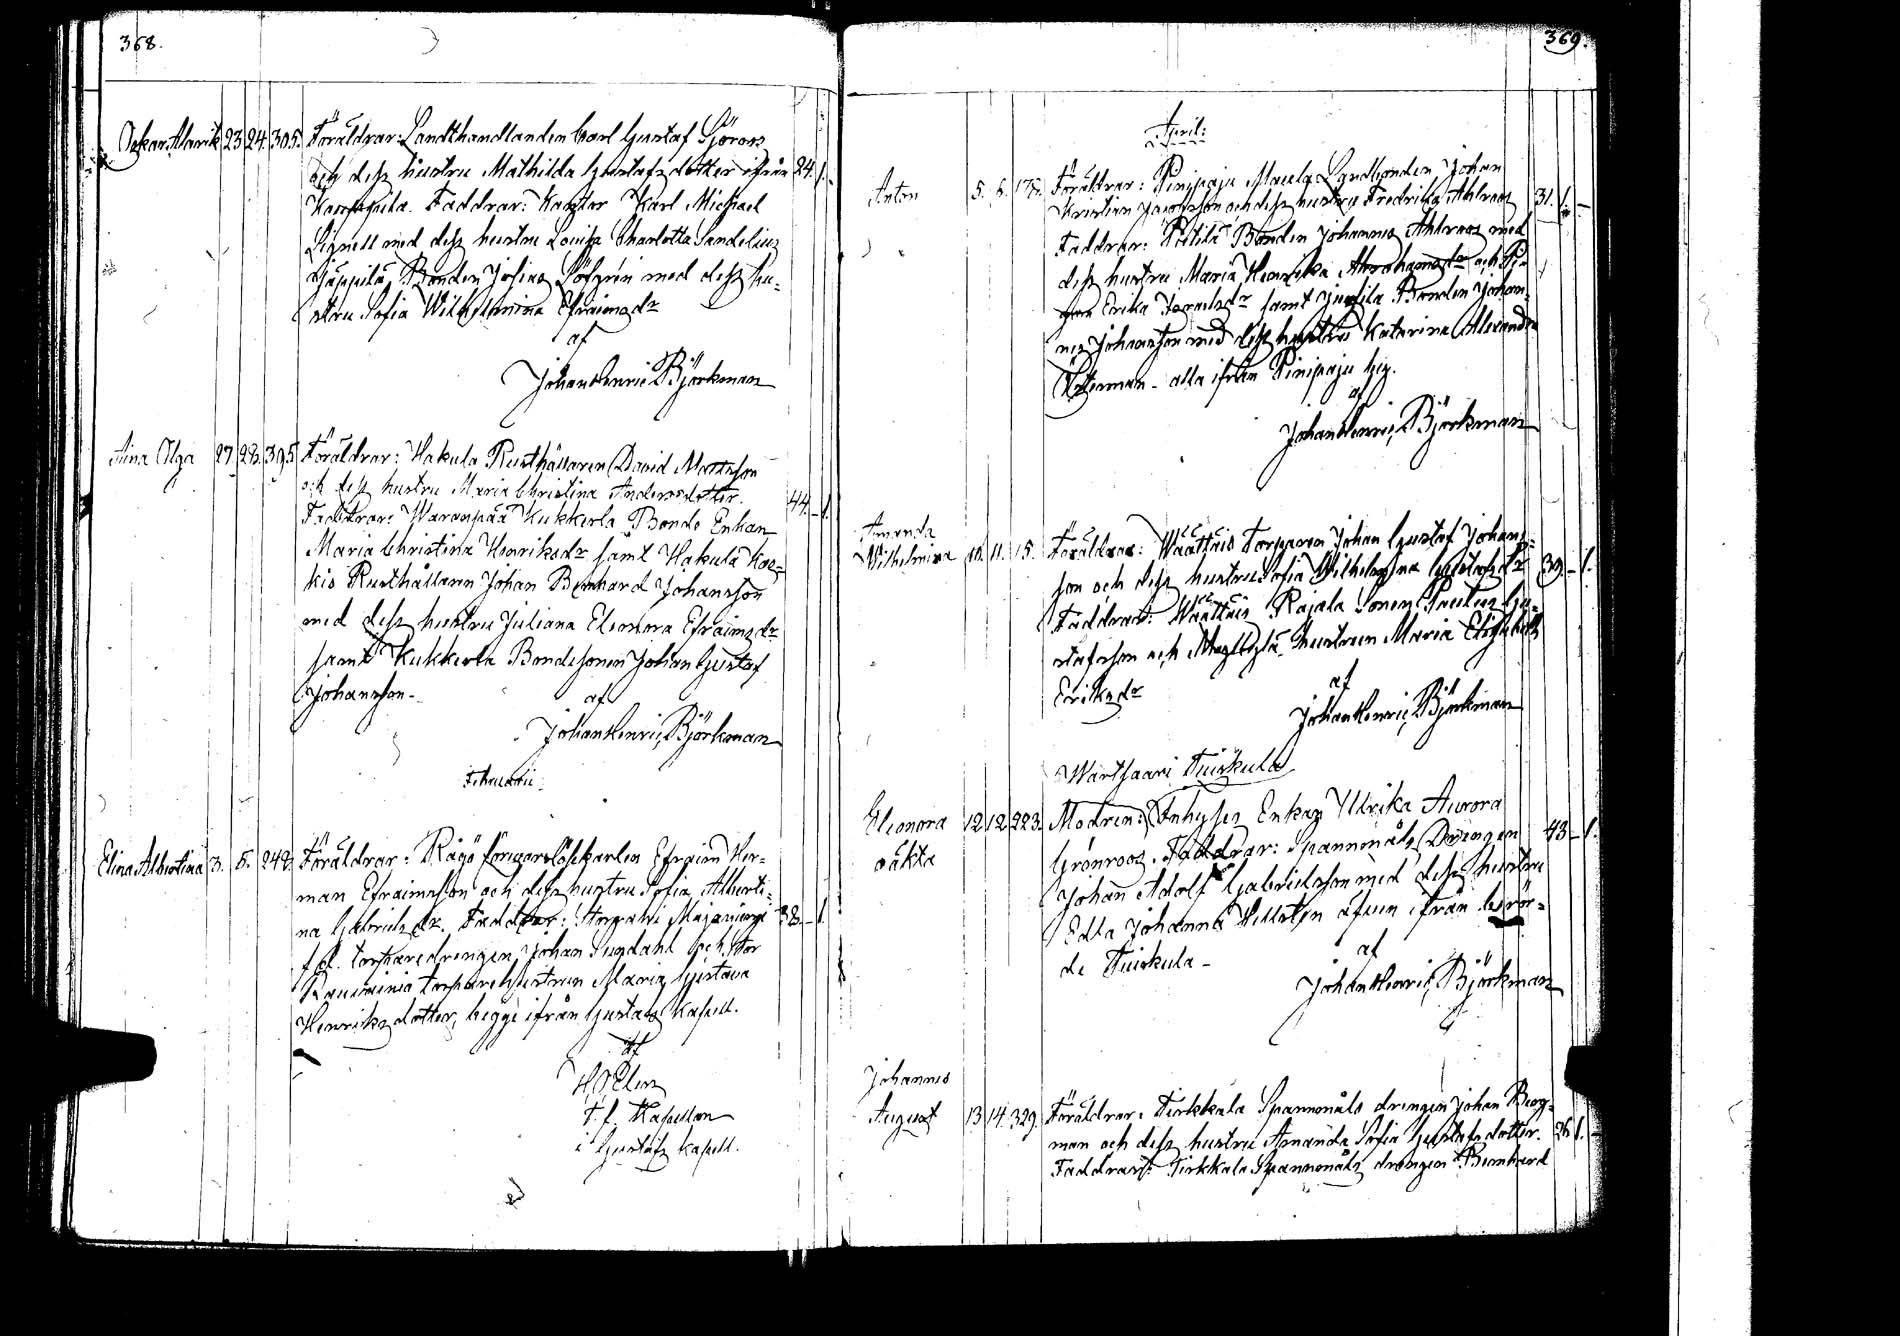 368.
Oskar Alarik 23 24 305. Föräldrar: Landthandlanden Carl Gustaf Sjöroos
och dess hustru Mathilda Gustafsdotter ifrån 24. 1.
Faddrar: Kantor Karl Michael
Lignell med dess hustru Lovisa Charlotta Sandelius
Bonden Josias Löfgrén med dess hu-
stru Sofia Wilhelmina Efraimsdr
af
Johan Henric Björkman
Aina Olga 27 28. 395 Föräldrar: Hakula Rusthållaren David Mattsson
och dess hustru Maria Christina Andersdotter. 44. – 1.
Faddrar: Waranpää Kukkerla Bonde Enkan
Maria Christina Henriksdr samt Hakula Kos-
kis Rusthållaren Johan Bernhard Johansson
med dess hustru Juliana Eleonora Efraimsdr
samt Kukkerla Bondesonen Johan Gustaf
Johansson –
af
Johan Henric Björkman
Februarii
Elina Albertina 3. 5. 248. Föräldrar: Rågö Efraim Her-
man Efraimsson och dess hustru Sofia Alberti-
na Gabrielsdr. Faddrar: 38. – 1.
f.d. torparedrengen Johan Sundahl och
torparehustrun Maria Gustava
Henriksdotter, begge ifrån Gustafs Kapell.
af
T. f. Kapellan
i Gustafs Kapell.
369.
April:
Anton 5. 6. 175. Föräldrar: Pinipaju Landbonden Johan
Kristian Jacobsson och dess hustru Fredrika Ahlroos 31. 1. –
Faddrar: Bonden Johannes Ahlroos med
dess hustru Maria Henrika Abrahamsdr och Pi-
gan Erika samt Bonden Johan-
nes Johansson med dess hustru Katarina Alexandra
Österman – alla ifrån Pinipaju by.
af
Johan Henric Björkman
Amanda
Wilhelmina 10. 11. 15. Föräldrar: Wäättäis Torparen Johan Gustaf Johans-
son och dess hustru Sofia Wilhelmina Gustafsdr 39. – 1.
Faddrar: Wäättäis Rajala Sonen Paulus Gu-
stafsson och hustrun Maria Elisabeth
Eriksdr
af
Johan Henric Björkman
Wartsaari Tuiskula
Eleonora 12 12 223. Modren: Inhyses Enkan Ulrika Aurora
oäkta Grönroos. Faddrar: Spannmåls Drengen 43 – 1.
Johan Adolf Gabrielsson med dess hustru
Edla Johanna Hellstén äfven ifrån berör-
de Tuiskula –
af
Johan Henric Björkman
Johannes
August 13 14. 329. Föräldrar: Tirkkala Spannmåls drengen Johan Berg-
man och dess hustru Amanda Sofia Gustafsdotter. 26 1. –
Faddrar: Tirkkala Spannmåls drengen Bernhard